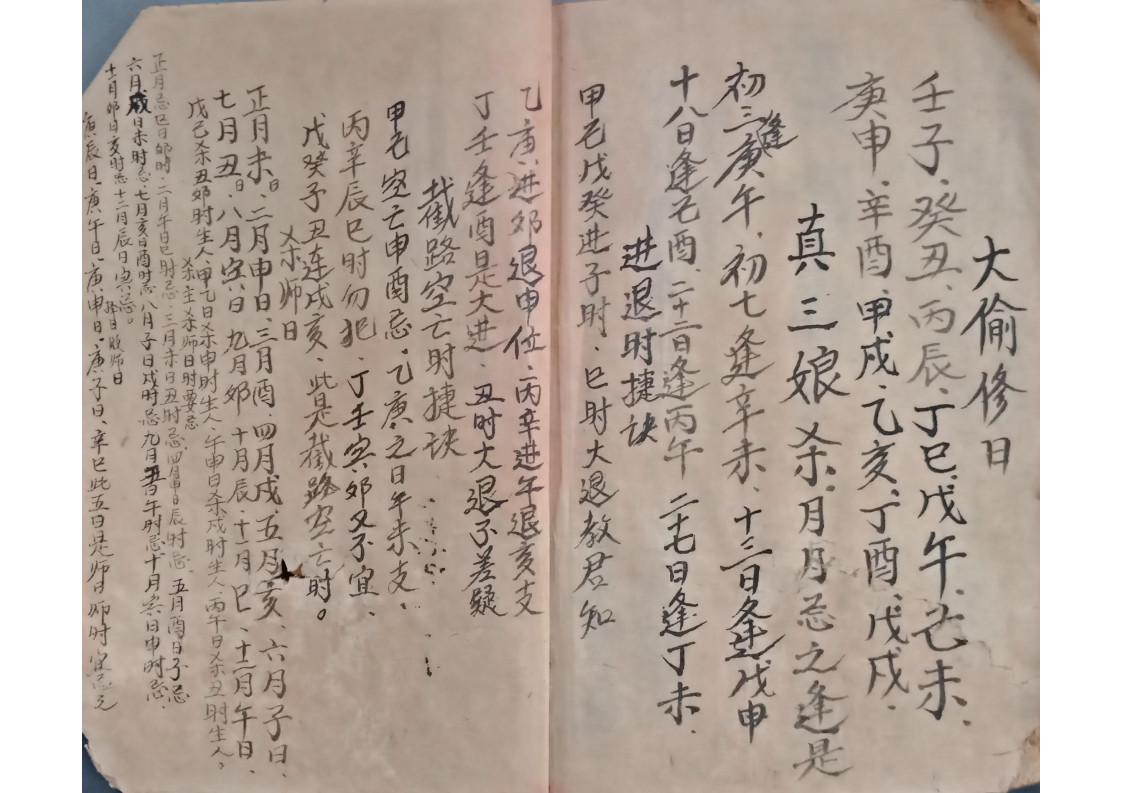 大偷修日
壬子、癸丑、丙辰、丁巳、戊午、己未、
庚申、辛酉、甲戌、乙亥、丁酉、戊戌、
真三娘杀、月月忌之逢是
初三逢庚午、初七逢辛未、十三日逢戊申
十八日逢己酉、二十二逢丙午 二十七日逢丁未、
进退时捷诀
甲己戊癸进子时、巳时大退教君知
乙庚进卯退申位、丙辛进午退亥支
丁壬逢酉是大进、丑时大退不差疑
截路空亡时捷诀
甲己空亡申酉忌、乙庚之日午未支、
丙辛辰巳时勿犯、丁壬寅卯又不宜、
戊癸子丑连戌亥、此是截路空亡时。
杀师日
正月未日、二月申日、三月酉、四月戌、五月亥、六月子日、
七月丑日、八月寅日 九月卯 十月辰、十一月巳、十二月午日、
戊己杀丑卯时生人、甲乙日杀申时生人、午申日杀戌时生人、丙午日杀丑时生人。
杀主杀师日时要忌
正月忌巳日卯时、二月午日巳时忌、三月未日丑时忌、四月申日辰时忌、五月酉日子忌
六月戌日未时忌、七月亥日酉时忌 八月子日戌时忌 九月丑日午时忌 十月寅日申时忌、
十一月卯日亥时忌 十二月辰日寅忌。
日败师日
庚辰日、庚午日、庚申日、庚子日、辛巳此五日是师日师时